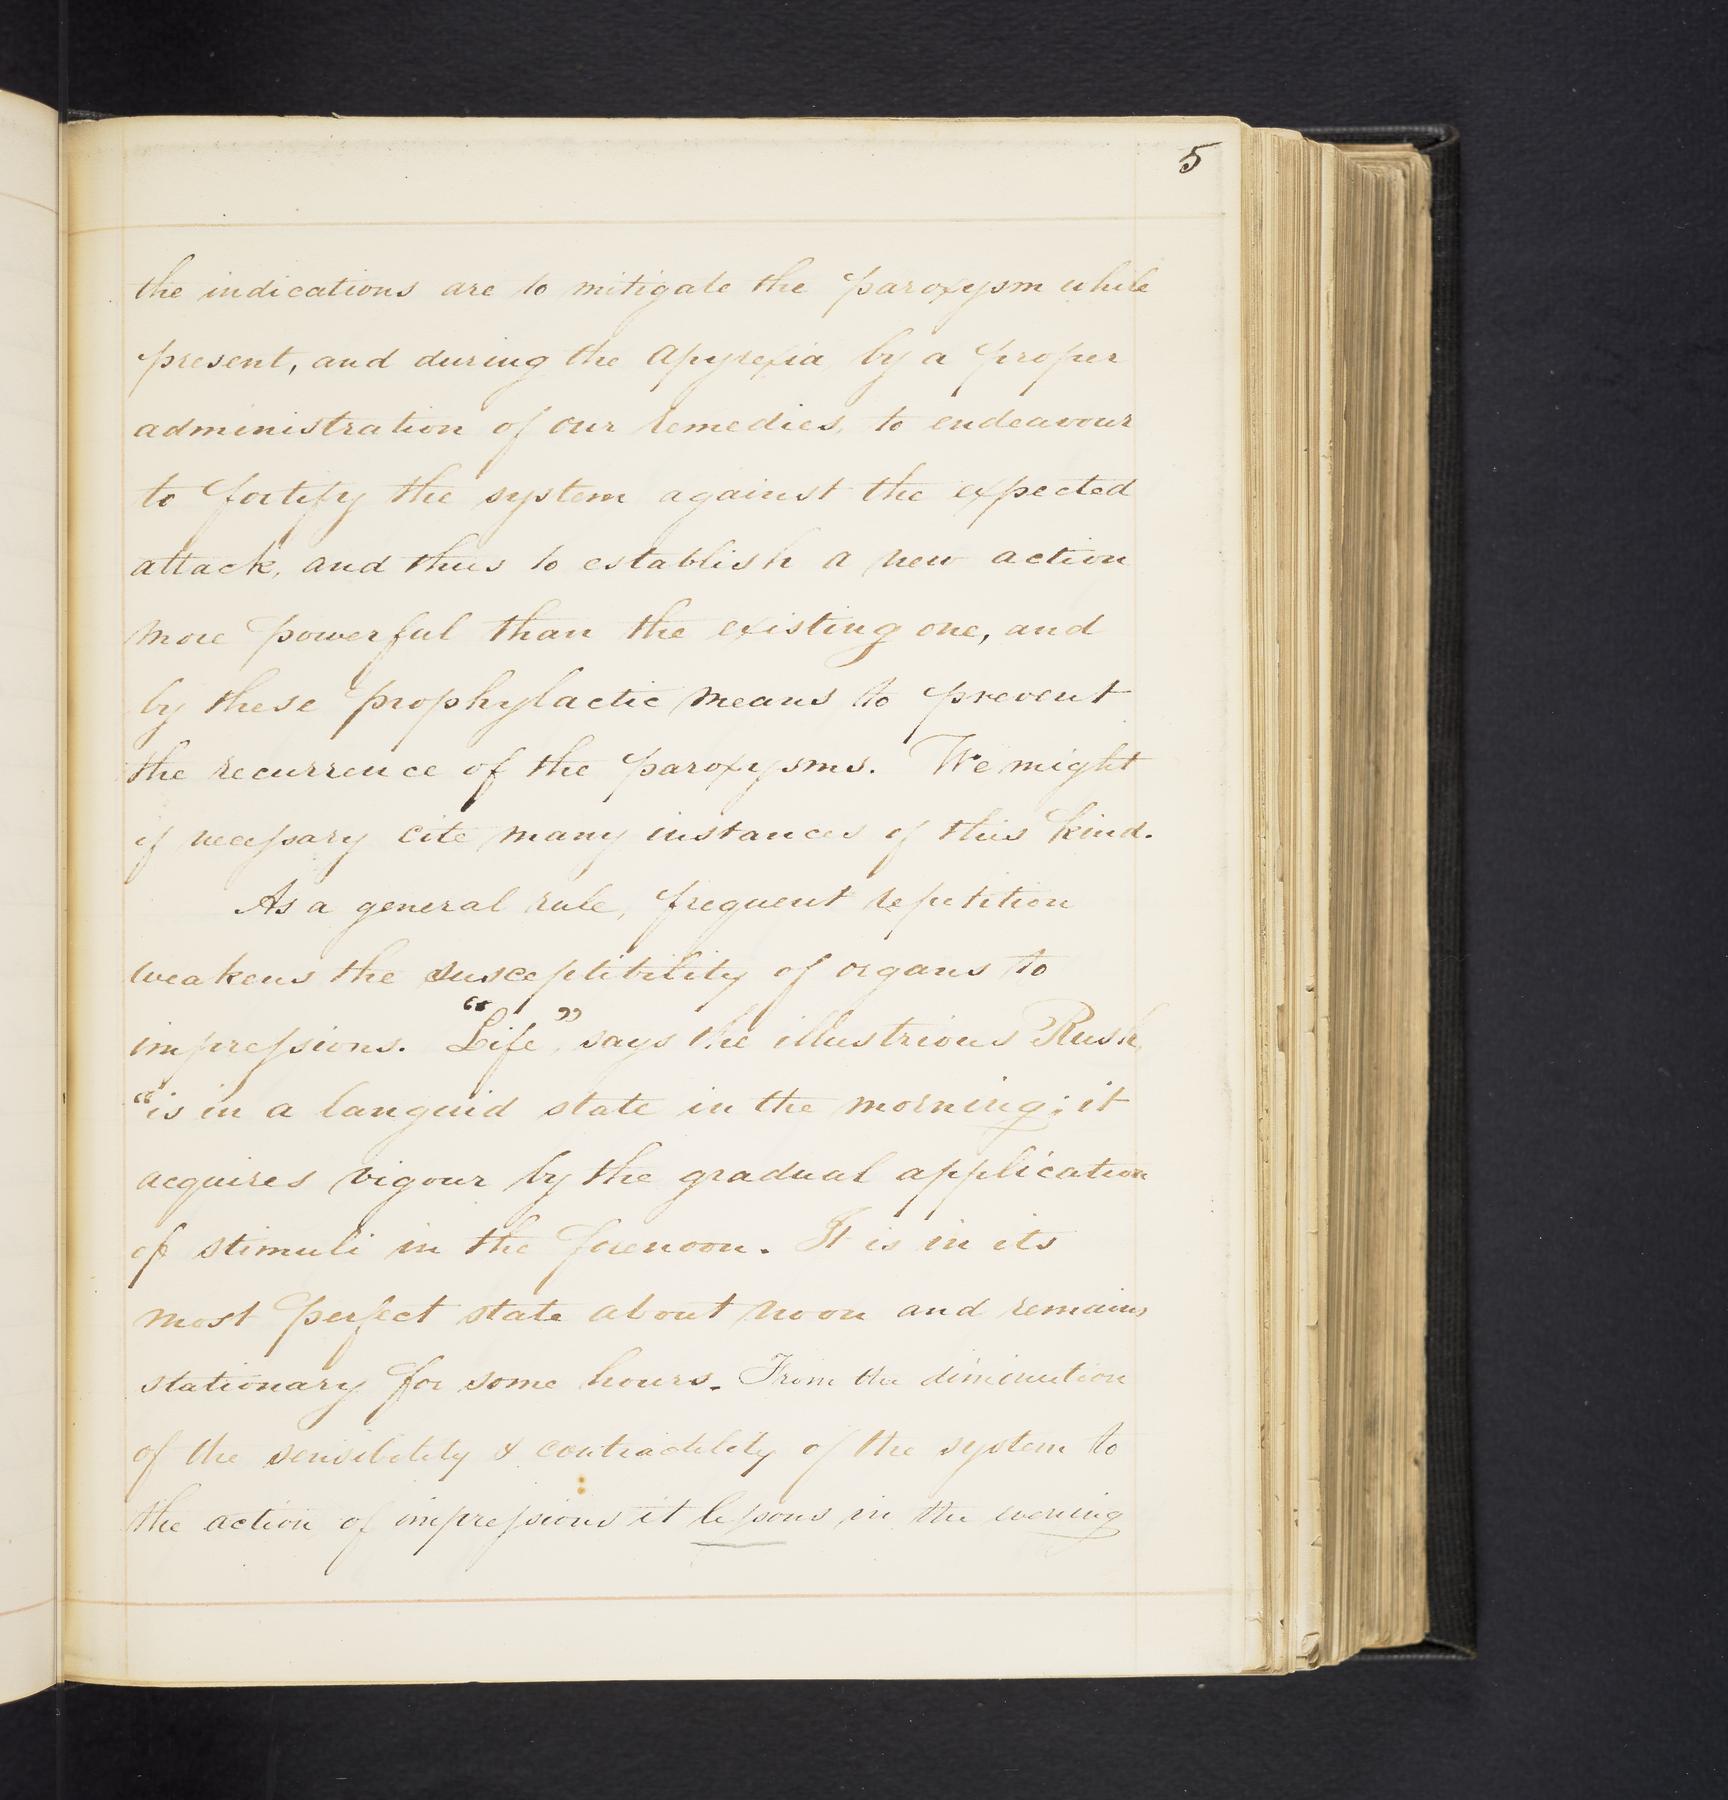 5
the indications are to mitigate the paroxysm while
present, and during the apyrexia by a proper
administration of our remedies, to endeavour
to fortify the system against the expected
attack, and thus to establish a new action
more powerful than the existing one, and
by these prophylactic means to prevent
the recurrence of the paroxysms. We might
if necessary cite many instances of this kind.
As a general rule, frequent repetition
weakens the susceptibility of organs to
impressions. "Life," says the illustrious Rush,
"is in a languid state in the morning; it
acquires vigour by the gradual application
of stimuli in the forenoon. It is in its
most perfect state about noon and remains
stationary for some hours. From the diminution
of the sensibility & contractility of the system to
the action of impressions it lessons in the evening